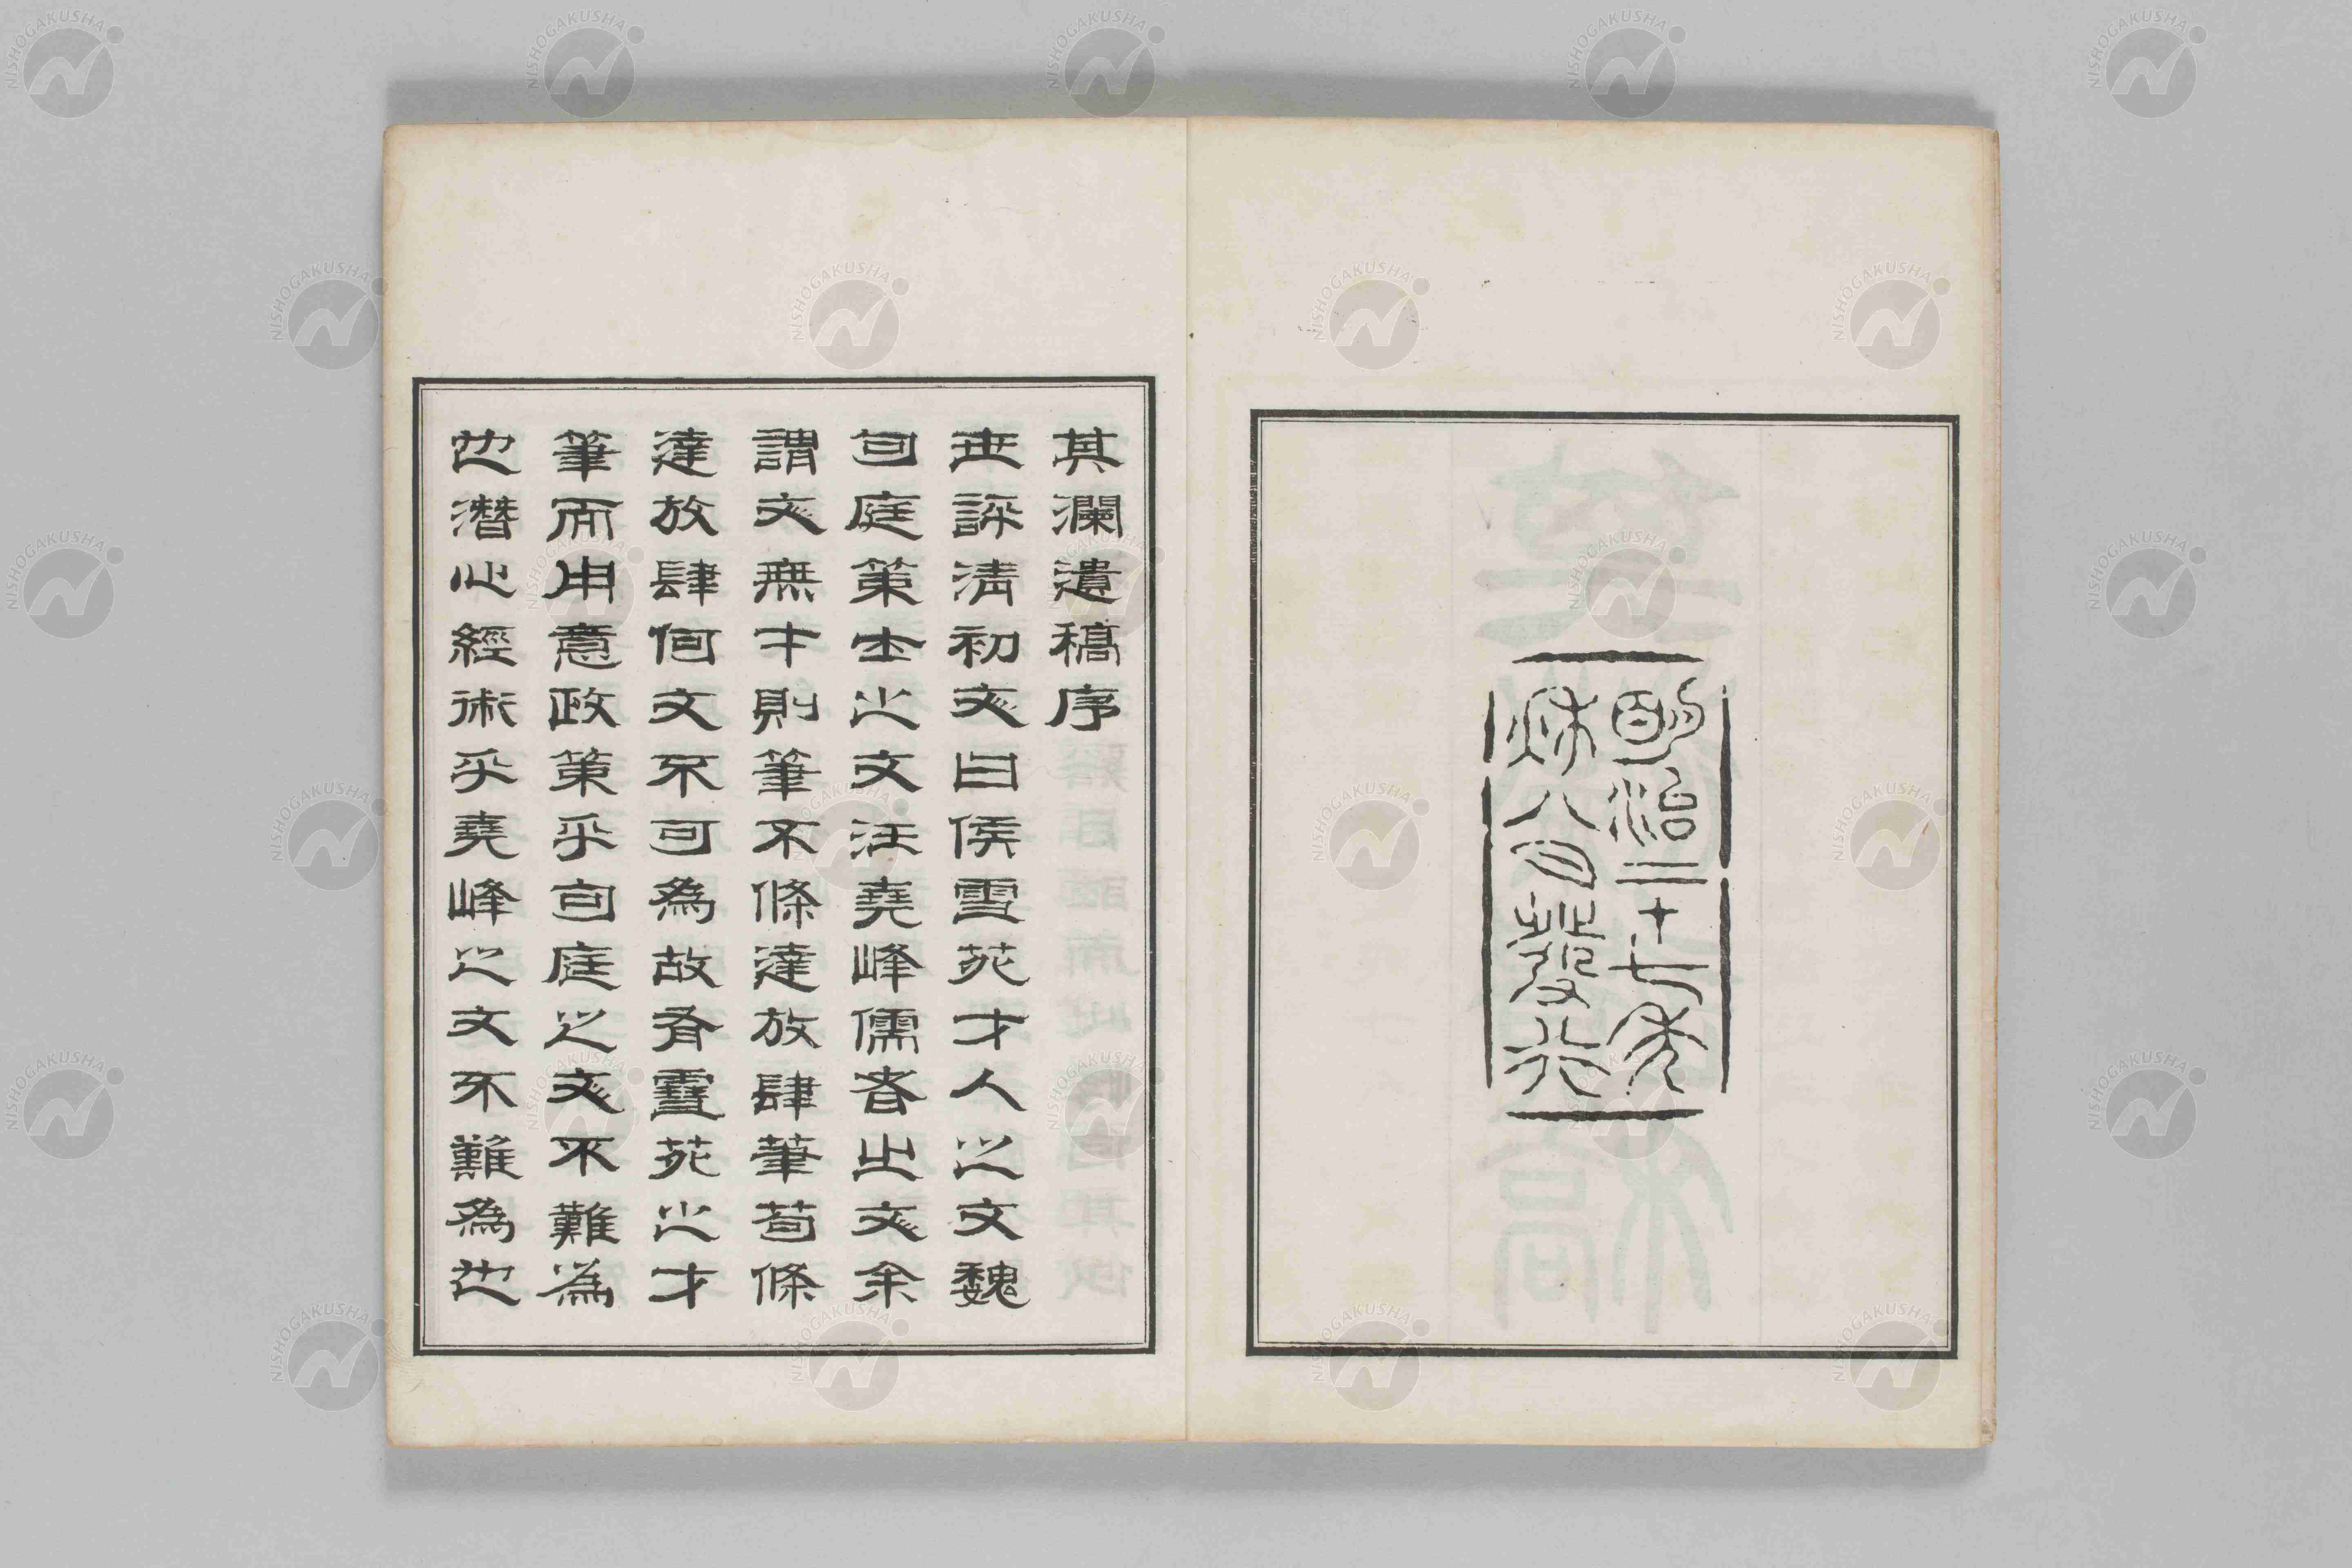 明治三十七年
秋八月發行
其瀾遺稿序
世評清初文曰侯雪苑才人之文魏
匂庭策士之文汪堯峰儒者之文余
謂文無才則筆不條達放肆筆苟條
達放肆何文不可為故有雪苑之才
筆而用意政策乎匂庭之文不難為
也潛心經術乎堯峰之文不難為也
NISHOGAKUSHA